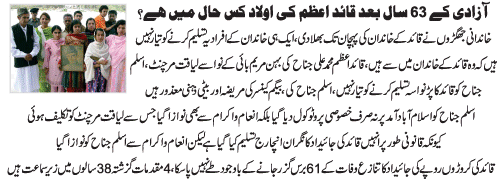 آزادی کے 63 سال بعد قائد اعظم کی اولاد کس حال میں ھے؟
خاندانی جھگڑوں نے قائد کے خاندان کی پہچان تک بھلا دی، ایک ہی خاندان کے افراد یہ تسلیم کرنے کو تیار نہیں
ہیں کہ وہ قائد کے خاندان میں سے ہیں، قائد اعظم محمد علی جناح کی بہن مریم بائی کے نواسے لیاقت مرچنٹ، اسلم
جناح کو قائد کا پڑنواسہ تسلیم کرنے کو تیار نہیں، اسلم جناح کی بیگم کینسر کی مریضہ اور بیٹی ذہنی معذور ہیں
اسلم جناح کو اسلام آباد آمد پر نہ صرف خصوصی پروٹوکول دیا گیا بلکہ انعام واکرام سے بھی نوازا گیا جس سے لیاقت مرچنٹ کو تکلیف ہوئی
کیونکہ قانونی طور پر انہیں قائد کی جائیداد کا نگران انچارج تسلیم کیا گیا ہے لیکن انعام واکرام سے اسلم جناح کو نوازا گیا
قائد کی کروڑوں روپے کی جائیداد کا تنازع وفات کے 61 برس گزر جانے کے باوجود طے نہیں پا سکا، 4 مقدمات گزشتہ 38 سالوں میں زیر سماعت ہیں